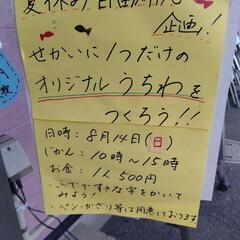 夏休み自由研究
企画!!
せかいに1つだけの
オリジナルうちわを
つくろう!!
日時:8月14日(日)
じかん:10時〜15時
お金:1人500円
・ふでですきな字をかいて
みよう!
・ペン・かざり等は用意しております